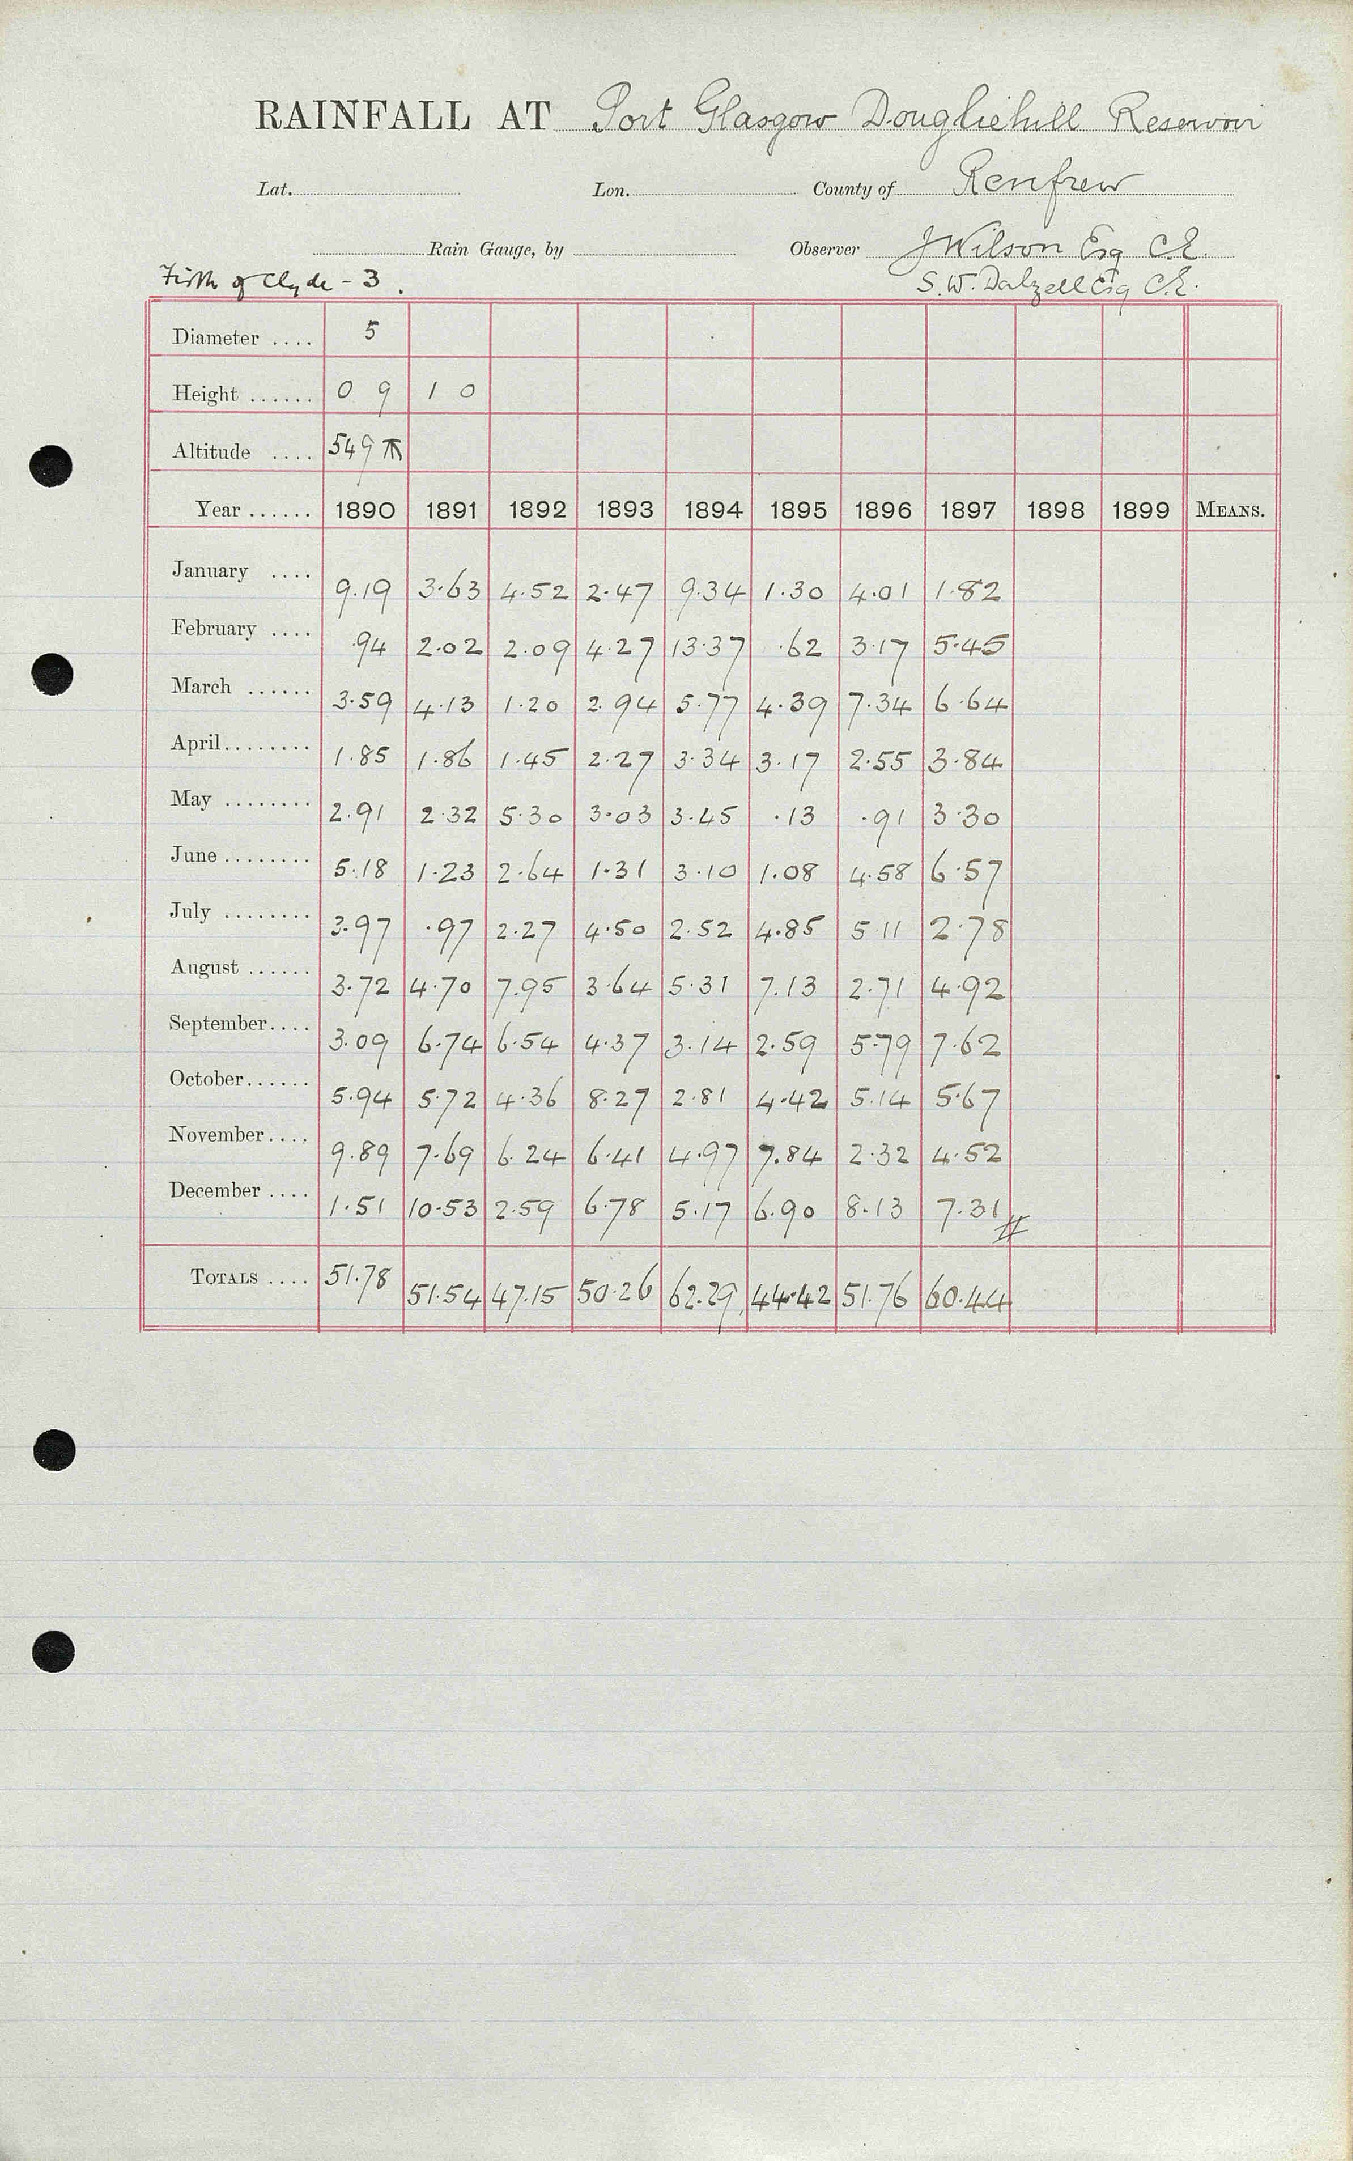 RAINFALL AT Port Glasgow Dougliehill Reservoir
Lat. Lon. County of Renfrew
Rain Gauge, by Observer J Wilson Esq C.E.
Firth of Clyde - 3. S. W. Dalzell Esq C.E.
Diameter .... 5
Height ...... 0 9 1 0
Altitude .... 549
Year ...... 1890 1891 1892 1893 1894 1895 1896 1897 1898 1899 MEANS.
January .... 9.19 3.63 4.52 2.47 9.34 1.30 4.01 1.82
February .... .94 2.02 2.09 4.27 13.37 .62 3.17 5.45
March ...... 3.59 4.13 1.20 2.94 5.77 4.39 7.34 6.64
April ........ 1.85 1.86 1.45 2.27 3.34 3.17 2.55 3.84
May ........ 2.91 2.32 5.30 3.03 3.45 .13 .91 3.30
June ........ 5.18 1.23 2.64 1.31 3.10 1.08 4.58 6.57
July ........ 3.97 .97 2.27 4.50 2.52 4.85 5.11 2.78
August ...... 3.72 4.70 7.95 3.64 5.31 7.13 2.71 4.92
September .... 3.09 6.74 6.54 4.37 3.14 2.59 5.79 7.62
October ...... 5.94 5.72 4.36 8.27 2.81 4.42 5.14 5.67
November .... 9.89 7.69 6.24 6.41 4.97 7.84 2.32 4.52
December .... 1.51 10.53 2.59 6.78 5.17 6.90 8.13 7.31
TOTALS .... 51.78 51.54 47.15 50.26 62.29 44.42 51.76 60.44